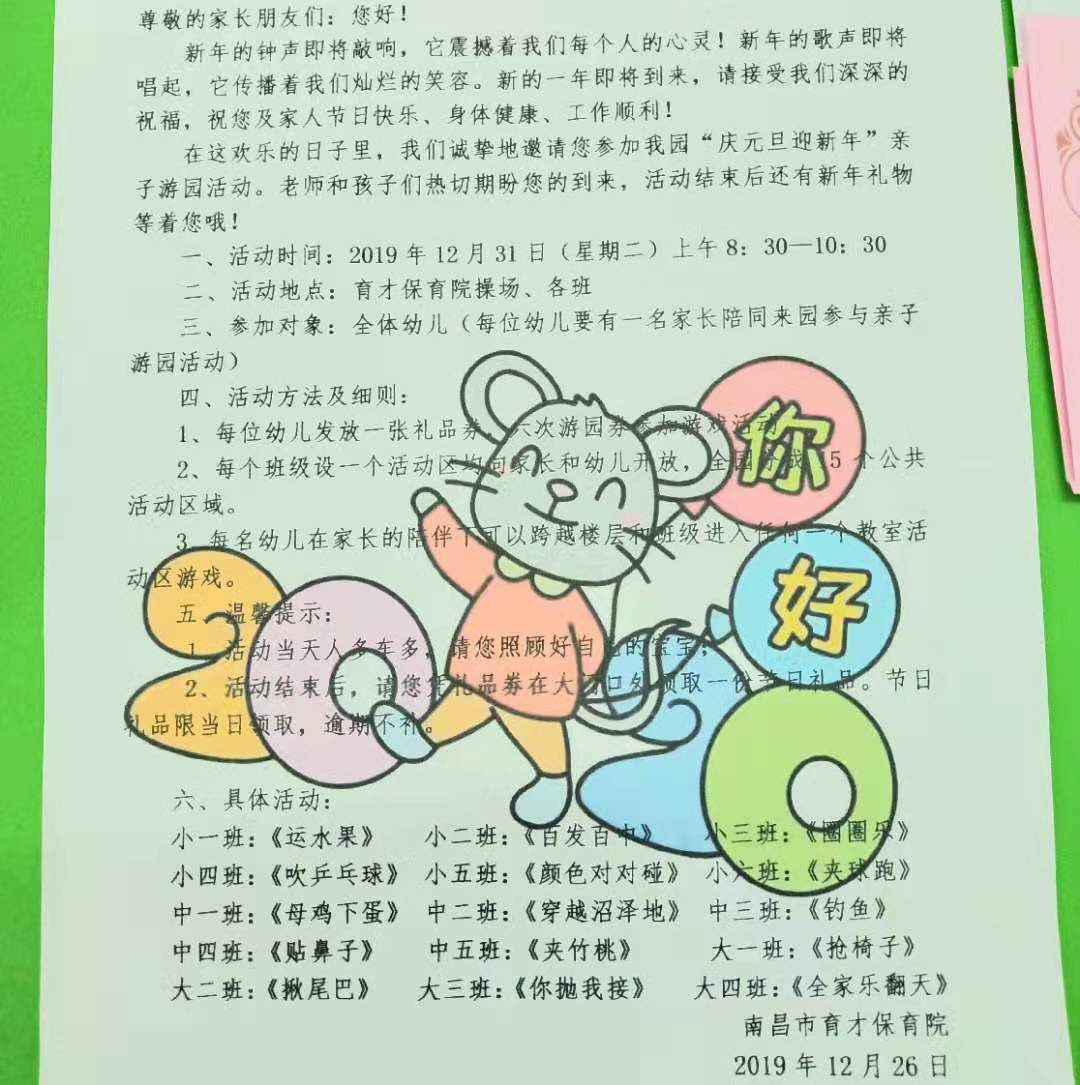 尊敬的家长朋友们：您好！
新年的钟声即将敲响，它震撼着我们每个人的心灵！新年的歌声即将
唱起，它传播着我们灿烂的笑容。新的一年即将到来，请接受我们深深的
祝福，祝您及家人节日快乐、身体健康、工作顺利！
在这欢乐的日子里，我们诚挚地邀请您参加我园“庆元旦迎新年”亲
子游园活动。老师和孩子们热切期盼您的到来，活动结束后还有新年礼物
等着您哦！
一、活动时间：2019 年 12 月 31 日（星期二）上午 8：30—10：30
二、活动地点：育才保育院操场、各班
三、参加对象：全体幼儿（每位幼儿要有一名家长陪同来园参与亲子
游园活动）
四、活动方法及细则：
1、每位幼儿发放一张礼品券，六次游园券参加游戏活动
2、每个班级设一个活动区均向家长和幼儿开放，全园分成 15 个公共
活动区域。
3、每名幼儿在家长的陪伴下可以跨越楼层和班级进入任何一个教室活
动区游戏。
五、温馨提示：
1、活动当天人多车多，请您照顾好自己的宝宝；
2、活动结束后，请您凭礼品券在大门口处领取一份节日礼品。节日
礼品限当日领取，逾期不补。
你
好
2020
六、具体活动：
小一班：《运水果》 小二班：《百发百中》 小三班：《圈圈乐》
小四班：《吹乒乓球》 小五班：《颜色对对碰》 小六班：《夹球跑》
中一班：《母鸡下蛋》 中二班：《穿越沼泽地》 中三班：《钓鱼》
中四班：《贴鼻子》 中五班：《夹竹桃》 大一班：《抢椅子》
大二班：《揪尾巴》 大三班：《你抛我接》 大四班：《全家乐翻天》
南昌市育才保育院
2019 年 12 月 26 日